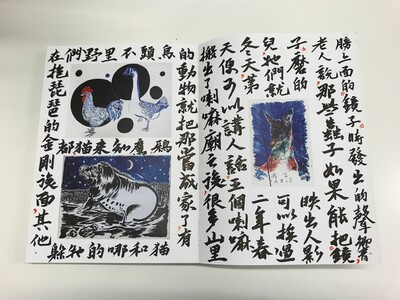 膀上面的鏡子時發出的聲響
老人說那些蟲子如果能把鏡
子磨的映出人影
兒牠們就可以挨過
冬天第二年春
天便可以講人話五個喇嘛
搬出了喇嘛廟之後很多山里
的動物就把那當成家了有
鳥鵝貓
頭鷹和
不知哪
里來的
野貓牠
們都躲
在抱琵琶的金剛後面其他